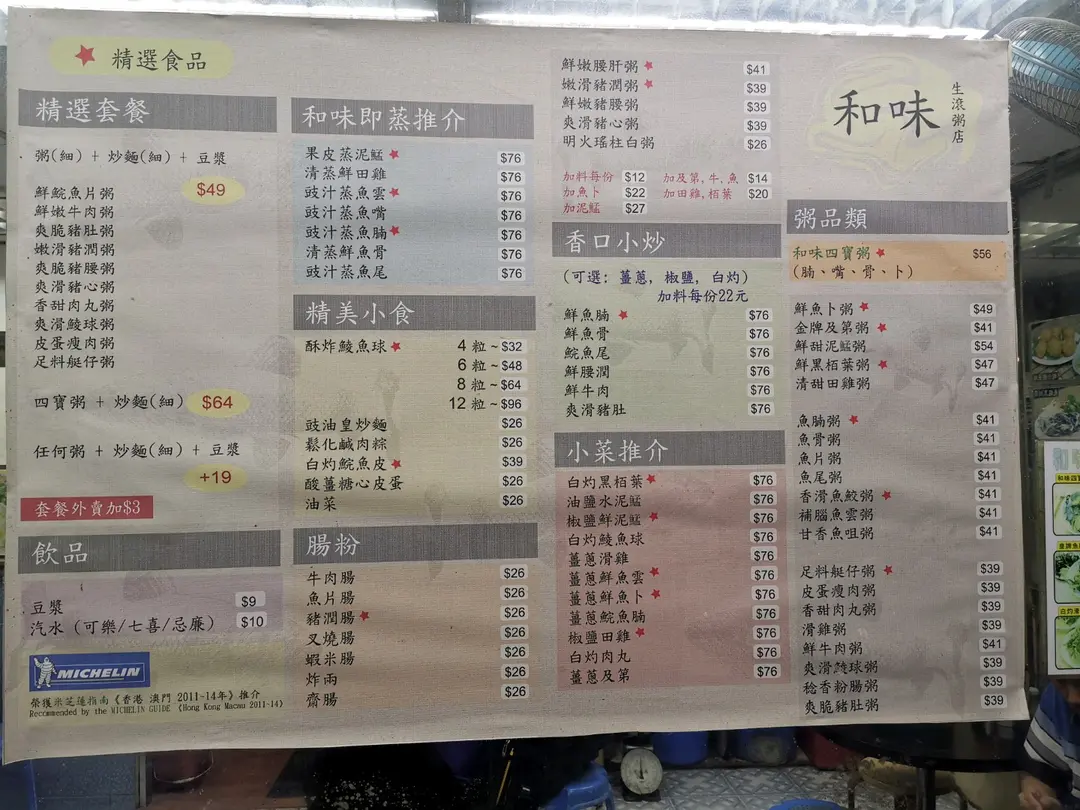 精選食品
精選套餐
粥(細) + 炒麵(細) + 豆漿
$49
鮮鯇魚片粥
鮮嫩牛肉粥
爽脆豬肚粥
嫩滑豬潤粥
爽脆豬腰粥
爽滑豬心粥
香甜肉丸粥
爽滑鯪球粥
皮蛋瘦肉粥
足料艇仔粥
四寶粥 + 炒麵(細) $64
任何粥 + 炒麵(細) + 豆漿
+19
套餐外賣加$3
飲品
豆漿 $9
汽水 (可樂/七喜/忌廉) $10
MICHELIN
榮獲米芝蓮指南《香港 澳門 2011-14年》推介
Recommended by the MICHELIN GUIDE (Hong Kong Macau 2011-14)
和味即蒸推介
果皮蒸泥鯭 $76
清蒸鮮田雞 $76
豉汁蒸魚雲 $76
豉汁蒸魚嘴 $76
豉汁蒸魚腩 $76
清蒸鮮魚骨 $76
豉汁蒸魚尾 $76
精美小食
酥炸鯪魚球 4 粒~$32
6 粒~$48
8 粒~$64
12 粒~$96
豉油皇炒麵 $26
鬆化鹹肉粽 $26
白灼鯇魚皮 $39
酸薑糖心皮蛋 $26
油菜 $26
腸粉
牛肉腸 $26
魚片腸 $26
豬潤腸 $26
叉燒腸 $26
蝦米腸 $26
炸兩 $26
齋腸 $26
鮮嫩腰肝粥 $41
嫩滑豬潤粥 $39
鮮嫩豬腰粥 $39
爽滑豬心粥 $39
明火瑤柱白粥 $26
加料每份 $12 加及第,牛,魚 $14
加魚卜 $22 加田雞,栢葉 $20
加泥鯭 $27
香口小炒
(可選: 薑蔥, 椒鹽, 白灼)
加料每份22元
鮮魚腩 $76
鮮魚骨 $76
鯇魚尾 $76
鮮腰潤 $76
鮮牛肉 $76
爽滑豬肚 $76
小菜推介
白灼黑栢葉 $76
油鹽水泥鯭 $76
椒鹽鮮泥鯭 $76
白灼鯪魚球 $76
薑蔥滑雞 $76
薑蔥鮮魚雲 $76
薑蔥鮮魚卜 $76
薑蔥鯇魚腩 $76
椒鹽田雞 $76
白灼肉丸 $76
薑蔥及第 $76
和味
生滾粥店
粥品類
和味四寶粥 $56
(腩、嘴、骨、卜)
鮮魚卜粥 $49
金牌及第粥 $41
鮮甜泥鯭粥 $54
鮮黑栢葉粥 $47
清甜田雞粥 $47
魚腩粥 $41
魚骨粥 $41
魚片粥 $41
魚尾粥 $41
香滑魚鮫粥 $41
補腦魚雲粥 $41
甘香魚咀粥 $41
足料艇仔粥 $39
皮蛋瘦肉粥 $39
香甜肉丸粥 $39
滑雞粥 $39
鮮牛肉粥 $41
爽滑鯪球粥 $39
稔香粉腸粥 $39
爽脆豬肚粥 $39